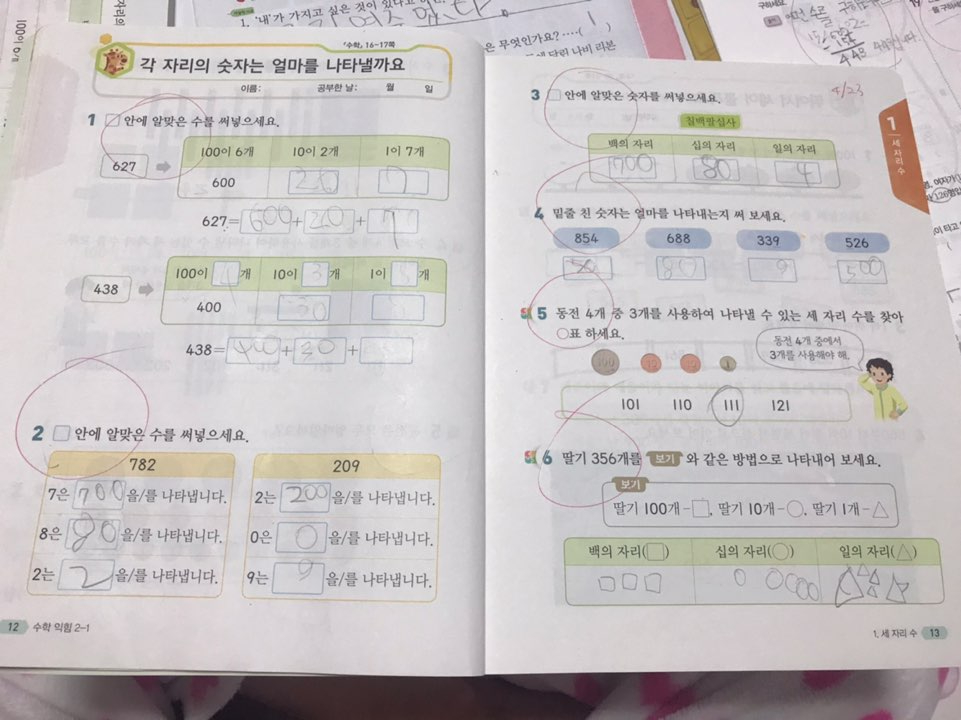 1. '내'가 가지고 싶은 것이
은 무엇인가요?
「수학」 16~17쪽
각 자리의 숫자는 얼마를 나타낼까요
이름: 공부한 날: 월 일
1 □ 안에 알맞은 수를 써넣으세요.
100이 6개 10이 2개 1이 7개
627
600 20 7
627= 600 + 20 + 7
100이 4 개 10이 3 개 1이 8 개
438
400 30 8
438= 400 + 30 +
2 □ 안에 알맞은 수를 써넣으세요.
782
7은 700 을/를 나타냅니다.
8은 80 을/를 나타냅니다.
2는 2 을/를 나타냅니다.
209
2는 200 을/를 나타냅니다.
0은 0 을/를 나타냅니다.
9는 9 을/를 나타냅니다.
12 수학 익힘 2-1
4/23
3 □ 안에 알맞은 숫자를 써넣으세요.
칠백팔십사
백의 자리 십의 자리 일의 자리
700 80 4
4 밑줄 친 숫자는 얼마를 나타내는지 써 보세요.
854 688 339 526
50 80 9 500
5 동전 4개 중 3개를 사용하여 나타낼 수 있는 세 자리 수를 찾아
○표 하세요.
동전 4개 중에서
3개를 사용해야 해.
100 10 10 1
101 110 111 121
6 딸기 356개를 보기 와 같은 방법으로 나타내어 보세요.
보기
딸기 100개-□, 딸기 10개-○, 딸기 1개-△
백의 자리(□) 십의 자리(○) 일의 자리(△)
1
세 자리 수
1. 세 자리 수 13